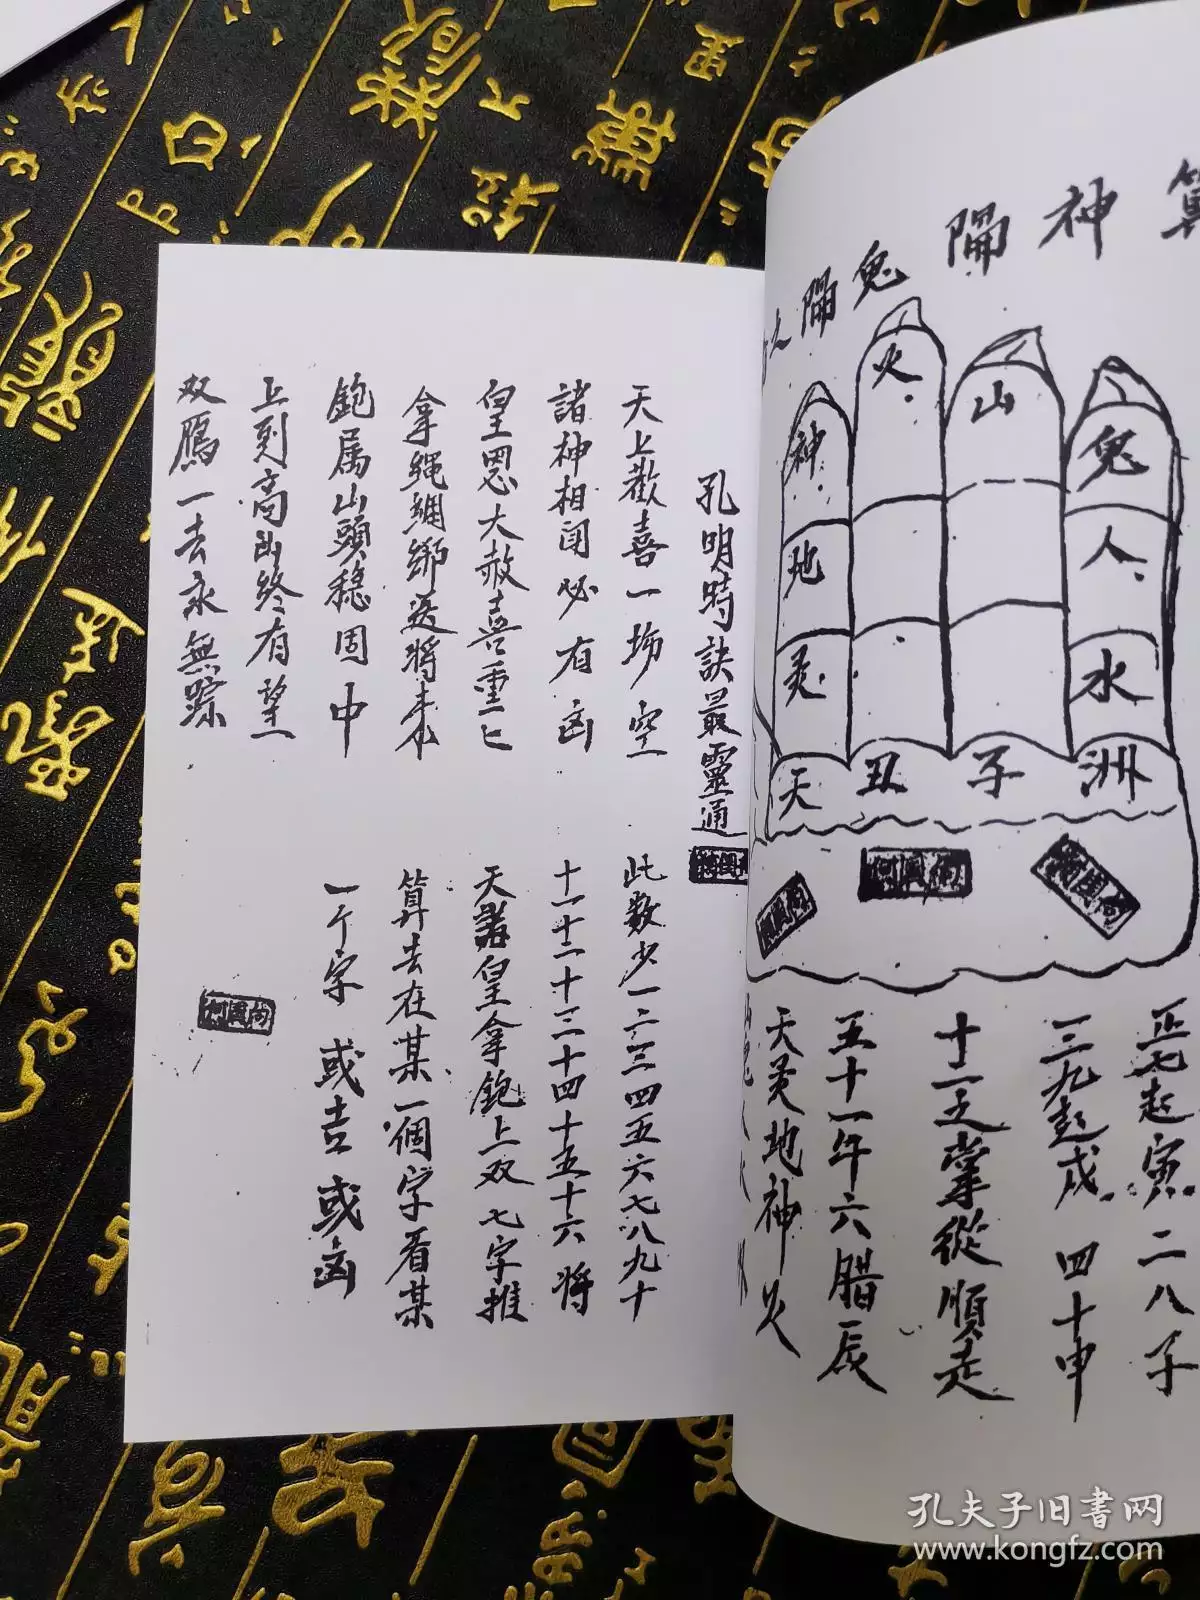 算神隔鬼隔之
鬼人水洲
山子
火丑
神地灵天
正七起寅二八子
三九起戌四十申
十二之掌從順走
五十一午六腊辰
天灵地神火
孔明時訣最靈通
天上歡喜一場空
諸神相闰必有凶
皇恩大赦喜重七
拿绳綑绑送將来
鉋属山頭穏固中
上到高山终有望
双鴈一去永無踪
此数少一二三四五六七八九十
十一十二十三十四十五十六將
天諸皇拿鉋上双七字推
算去在某一個字看某
一个字或吉或凶
何國尚
孔夫子旧书网
www.kongfz.com